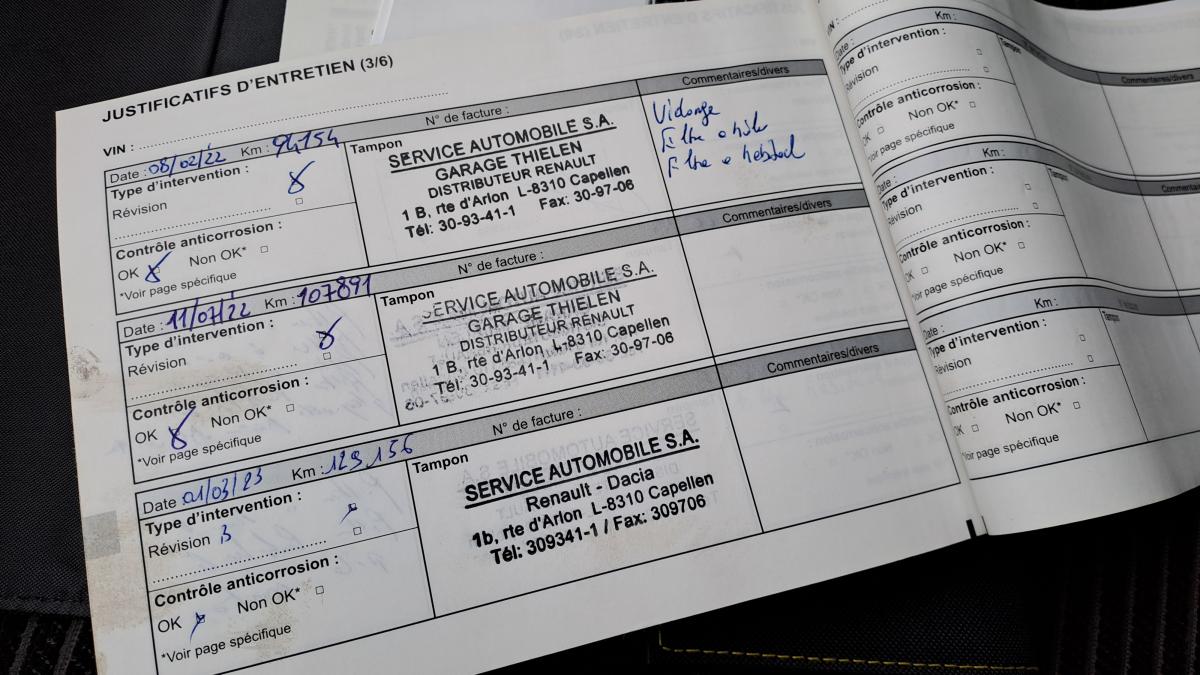 JUSTIFICATIFS D'ENTRETIEN (3/6)
VIN :
Date : 08/02/22 Km : 94154
N° de facture :
Commentaires/divers
Type d'intervention :
Révision
Contrôle anticorrosion :
OK Non OK*
*Voir page spécifique
Tampon
SERVICE AUTOMOBILE S.A.
GARAGE THIELEN
DISTRIBUTEUR RENAULT
1 B, rte d'Arlon L-8310 Capellen
Tél: 30-93-41-1 Fax: 30-97-06
Vidange
Date : 11/07/22 Km : 107891
N° de facture :
Commentaires/divers
Type d'intervention :
Révision
Contrôle anticorrosion :
OK Non OK*
*Voir page spécifique
Tampon
SERVICE AUTOMOBILE S.A.
GARAGE THIELEN
DISTRIBUTEUR RENAULT
1 B, rte d'Arlon L-8310 Capellen
Tél: 30-93-41-1 Fax: 30-97-06
Date 01/03/23 Km : 129.156
N° de facture :
Commentaires/divers
Type d'intervention :
Révision B
Contrôle anticorrosion :
OK Non OK*
*Voir page spécifique
Tampon
SERVICE AUTOMOBILE S.A.
Renault - Dacia
1b, rte d'Arlon L-8310 Capellen
Tél: 309341-1 / Fax: 309706
VIN :
Date : Km :
Type d'intervention :
Révision
Contrôle anticorrosion :
OK Non OK*
*Voir page spécifique
Tampon
Commentaires/divers
Date : Km :
Type d'intervention :
Révision
Contrôle anticorrosion :
OK Non OK*
*Voir page spécifique
Tampon
Commentaires/divers
Date : Km :
Type d'intervention :
Révision
Contrôle anticorrosion :
OK Non OK*
*Voir page spécifique
Tampon